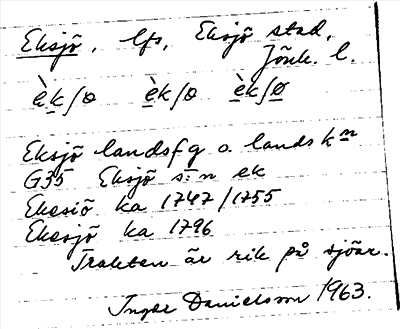 Eksjö, lfs, Eksjö stad,
Jönk. l.
èk/o èk/o èk/ø
Eksjö landsfg o. landskn
G35 Eksjö s:n ek
Ekesiö ka 1747/1755
Ekesjö ka 1796
Trakten är rik på sjöar.
Inger Danielsson 1963.